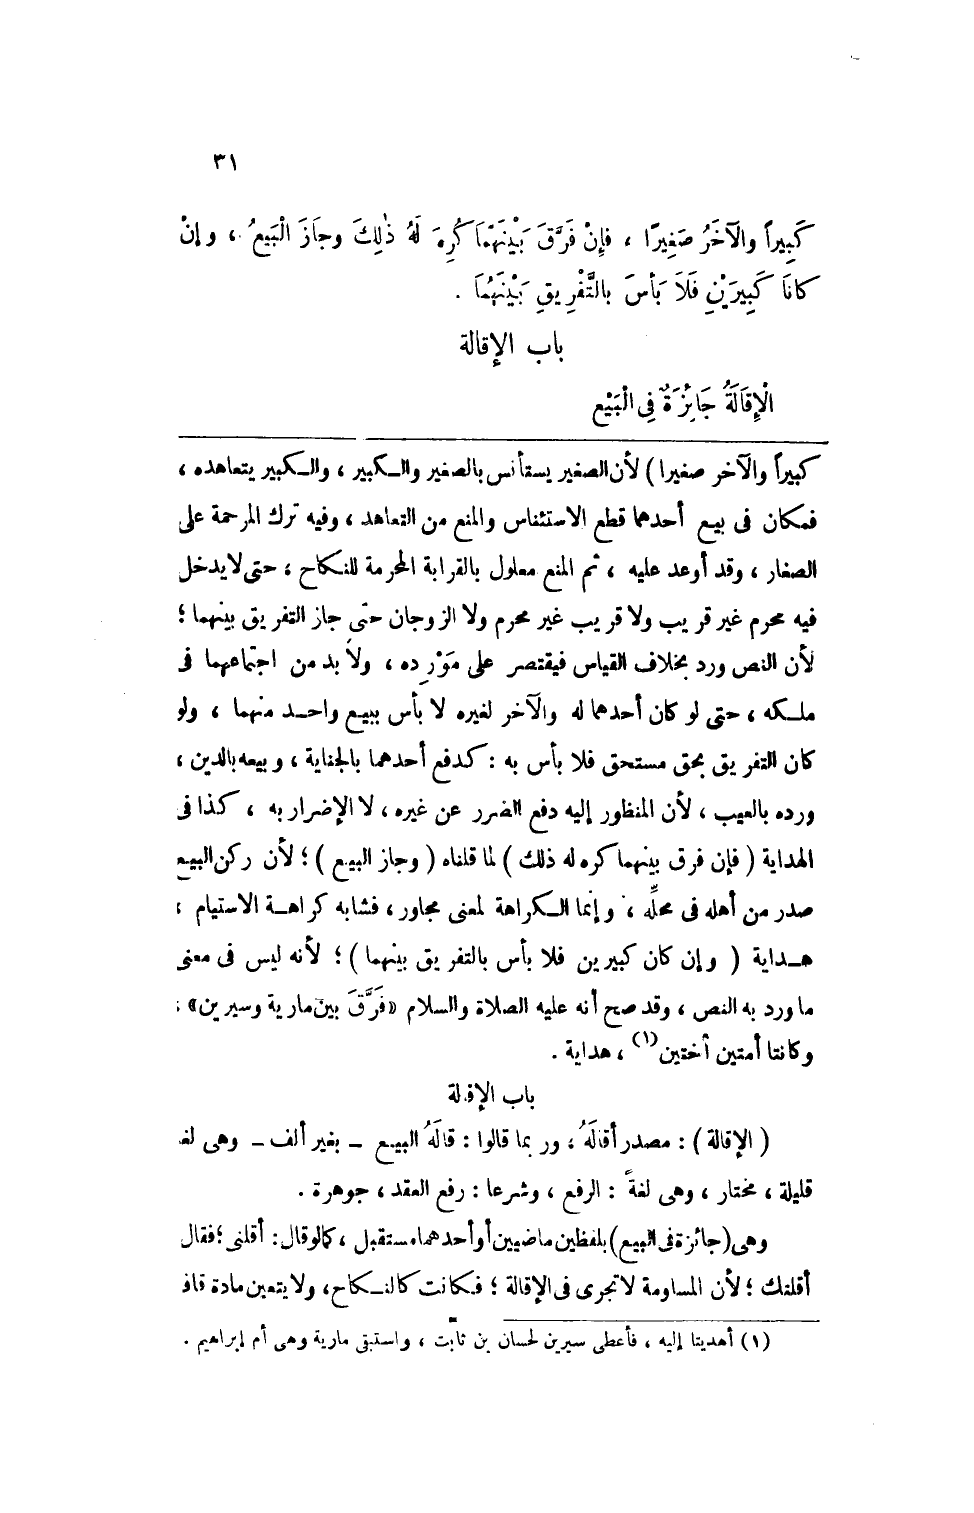 ٣١
كَبِيراً والآخَرُ صَغِيرًا ، فإِنْ فَرَّقَ بَيْنَهُمَا كُرِهَ لَهُ ذٰلِكَ وجازَ الْبَيعُ ، وإنْ
كانَا كَبِيرَيْنِ فَلَا بَأسَ بالتَّفْرِيقِ بَيْنَهُمَا .
باب الإقالة
الْإِقَالَةُ جَائِزَةٌ فِى الْبَيْعِ
كبيراً والآخر صغيرا ) لأن الصغير يستأنس بالصغير والكبير ، والكبير يتعاهده ،
فكان فى بيع أحدهما قطع الاستئناس والمنع من التعاهد ، وفيه ترك المرحمة على
الصغار ، وقد أوعد عليه ، ثم المنع معلول بالقرابة المحرمة للنكاح ، حتى لا يدخل
فيه محرم غير قريب ولا قريب غير محرم ولا الزوجان حتى جاز التفريق بينهما ؛
لأن النص ورد بخلاف القياس فيقتصر على مَوْرِده ، ولا بد من اجتماعهما فى
ملكه ، حتى لو كان أحدهما له والآخر لغيره لا بأس ببيع واحد منهما ، ولو
كان التفريق بحق مستحق فلا بأس به : كدفع أحدهما بالجناية ، وبيعه بالدين ،
ورده بالعيب ، لأن المنظور إليه دفع الضرر عن غيره ، لا الإضرار به ، كذا فى
الهداية ( فإن فرق بينهما كره له ذلك ) لما قلناه ( وجاز البيع ) ؛ لأن ركن البيع
صدر من أهله فى محلِّه ، وإنما الكراهة لمعنى مجاور ، فشابه كراهة الاستيام ،
هداية ( وإن كان كبيرين فلا بأس بالتفريق بينهما ) ؛ لأنه ليس فى معنى
ما ورد به النص ، وقد صح أنه عليه الصلاة والسلام «فَرَّقَ بين مارية وسيرين» ؛
وكانتا أمتين أختين (١) ، هداية .
باب الإقالة
( الإقالة ) : مصدر أقالَهُ ، وربما قالوا : قالَهُ البيع – بغير ألف – وهى لغة
قليلة ، مختار ، وهى لغةً : الرفع ، وشرعا : رفع العقد ، جوهرة .
وهى (جائزة فى البيع) بلفظين ماضيين أو أحدهما مستقبل ، كما لو قال : أقلنى ؛ فقال
أقلتك ؛ لأن المساومة لا تجرى فى الإقالة ؛ فكانت كالنكاح ، ولا يتعين مادة قاف
(١) أهديتا إليه ، فأعطى سيرين لحسان بن ثابت ، واستبقى مارية وهى أم إبراهيم .